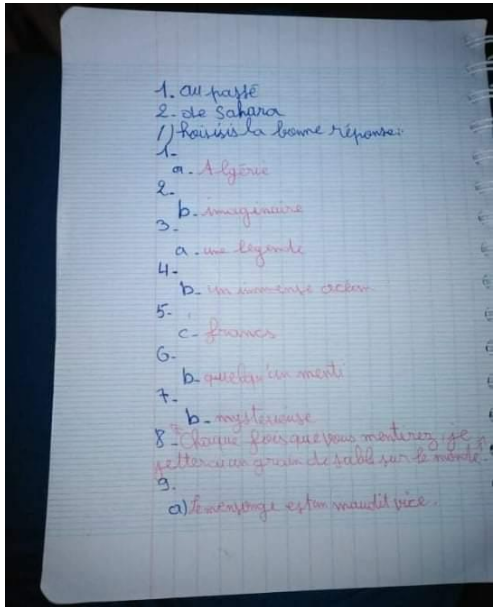 1. au passé
2. de Sahara
1) hoisisis la bonne réponse:
1-
a. Algérie
2.
b. imaginaire
3.
a. une légende
4-
b. un immense
5-
c. francs
6.
b. quelqu'un menti
7.
b. mystérieuse
8. Chaque fois que vous mentirez, je
jetterai un grain de sabl sur le monde.
9.
a) Le mensonge est un maudit vice.